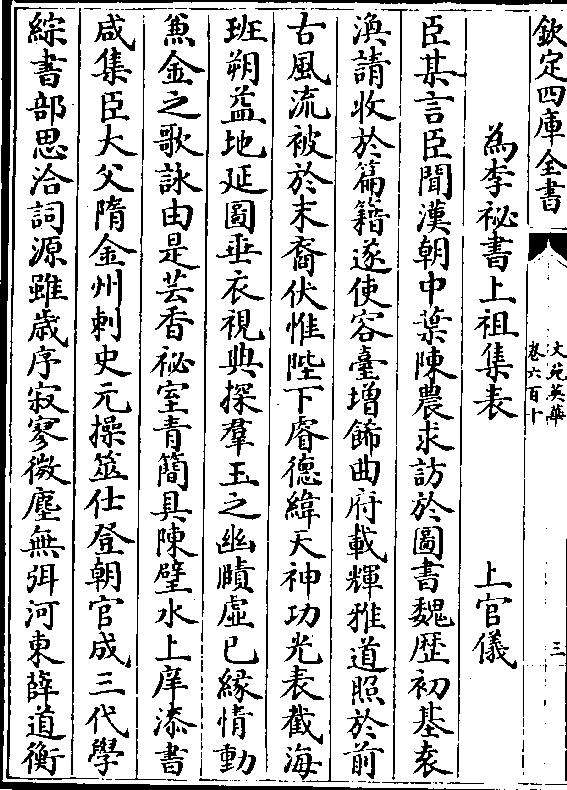 欽定四庫全書
文苑英華
卷六百十
三
為李祕書上祖集表 上官儀
臣某言臣聞漢朝中葉陳農求訪於圖書魏歴初基袁
渙請收於篇籍遂使容臺增飾曲府載輝雅道照於前
古風流被於末裔伏惟陛下睿德緯天神功光表截海
班朔益地延圖垂衣視典探羣玉之幽賾虛已緣情動
兼金之歌詠由是芸香祕室青簡具陳璧水上庠漆書
咸集臣大父隋金州刺史元操筮仕登朝官成三代學
綜書部思洽詞源雖歳序寂寥微塵無弭河東薛道衡